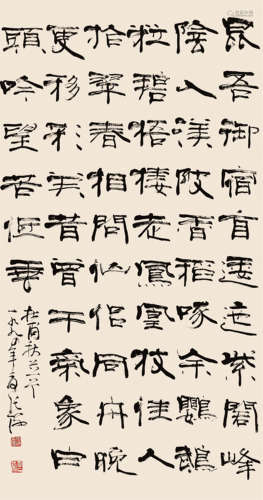 昆吾御宿自逶迤紫閣峰
陰入渼陂香稻啄余鸚鵡
粒碧梧棲老鳳凰枝佳人
拾翠春相問仙侶同舟晚
更移彩筆昔曾干氣象白
頭吟望苦低垂
杜甫秋兴
一九九 年 张海